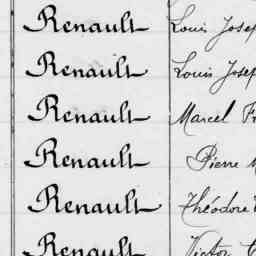 Renault Louis Josep
Renault Louis Josep
Renault Marcel Fr
Renault Pierre
Renault Théodore
Renault Victor